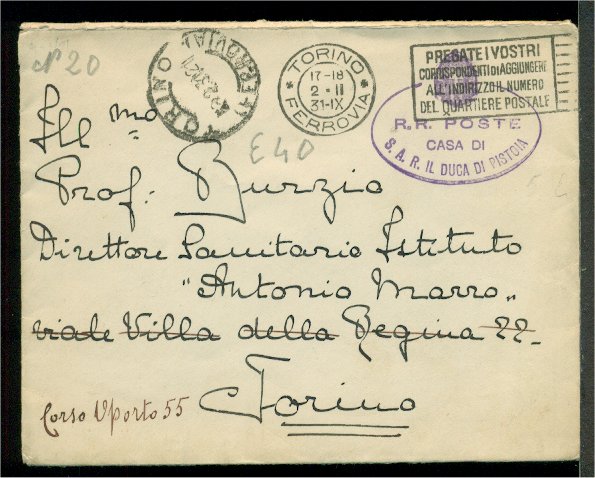 N° 20
TORINO FERROVIA
TORINO
17-18
2-II
31-IX
FERROVIA
PREGATE I VOSTRI
CORRISPONDENTI DI AGGIUNGERE
ALL'INDIRIZZO IL NUMERO
DEL QUARTIERE POSTALE
R.R. POSTE
CASA DI
S. A. R. IL DUCA DI PISTOIA
E40
Ill mo
Prof: Burzio
Direttore Sanitario Istituto
"Antonio Marro„
viale Villa della Regina 22-
Corso Oporto 55
Torino